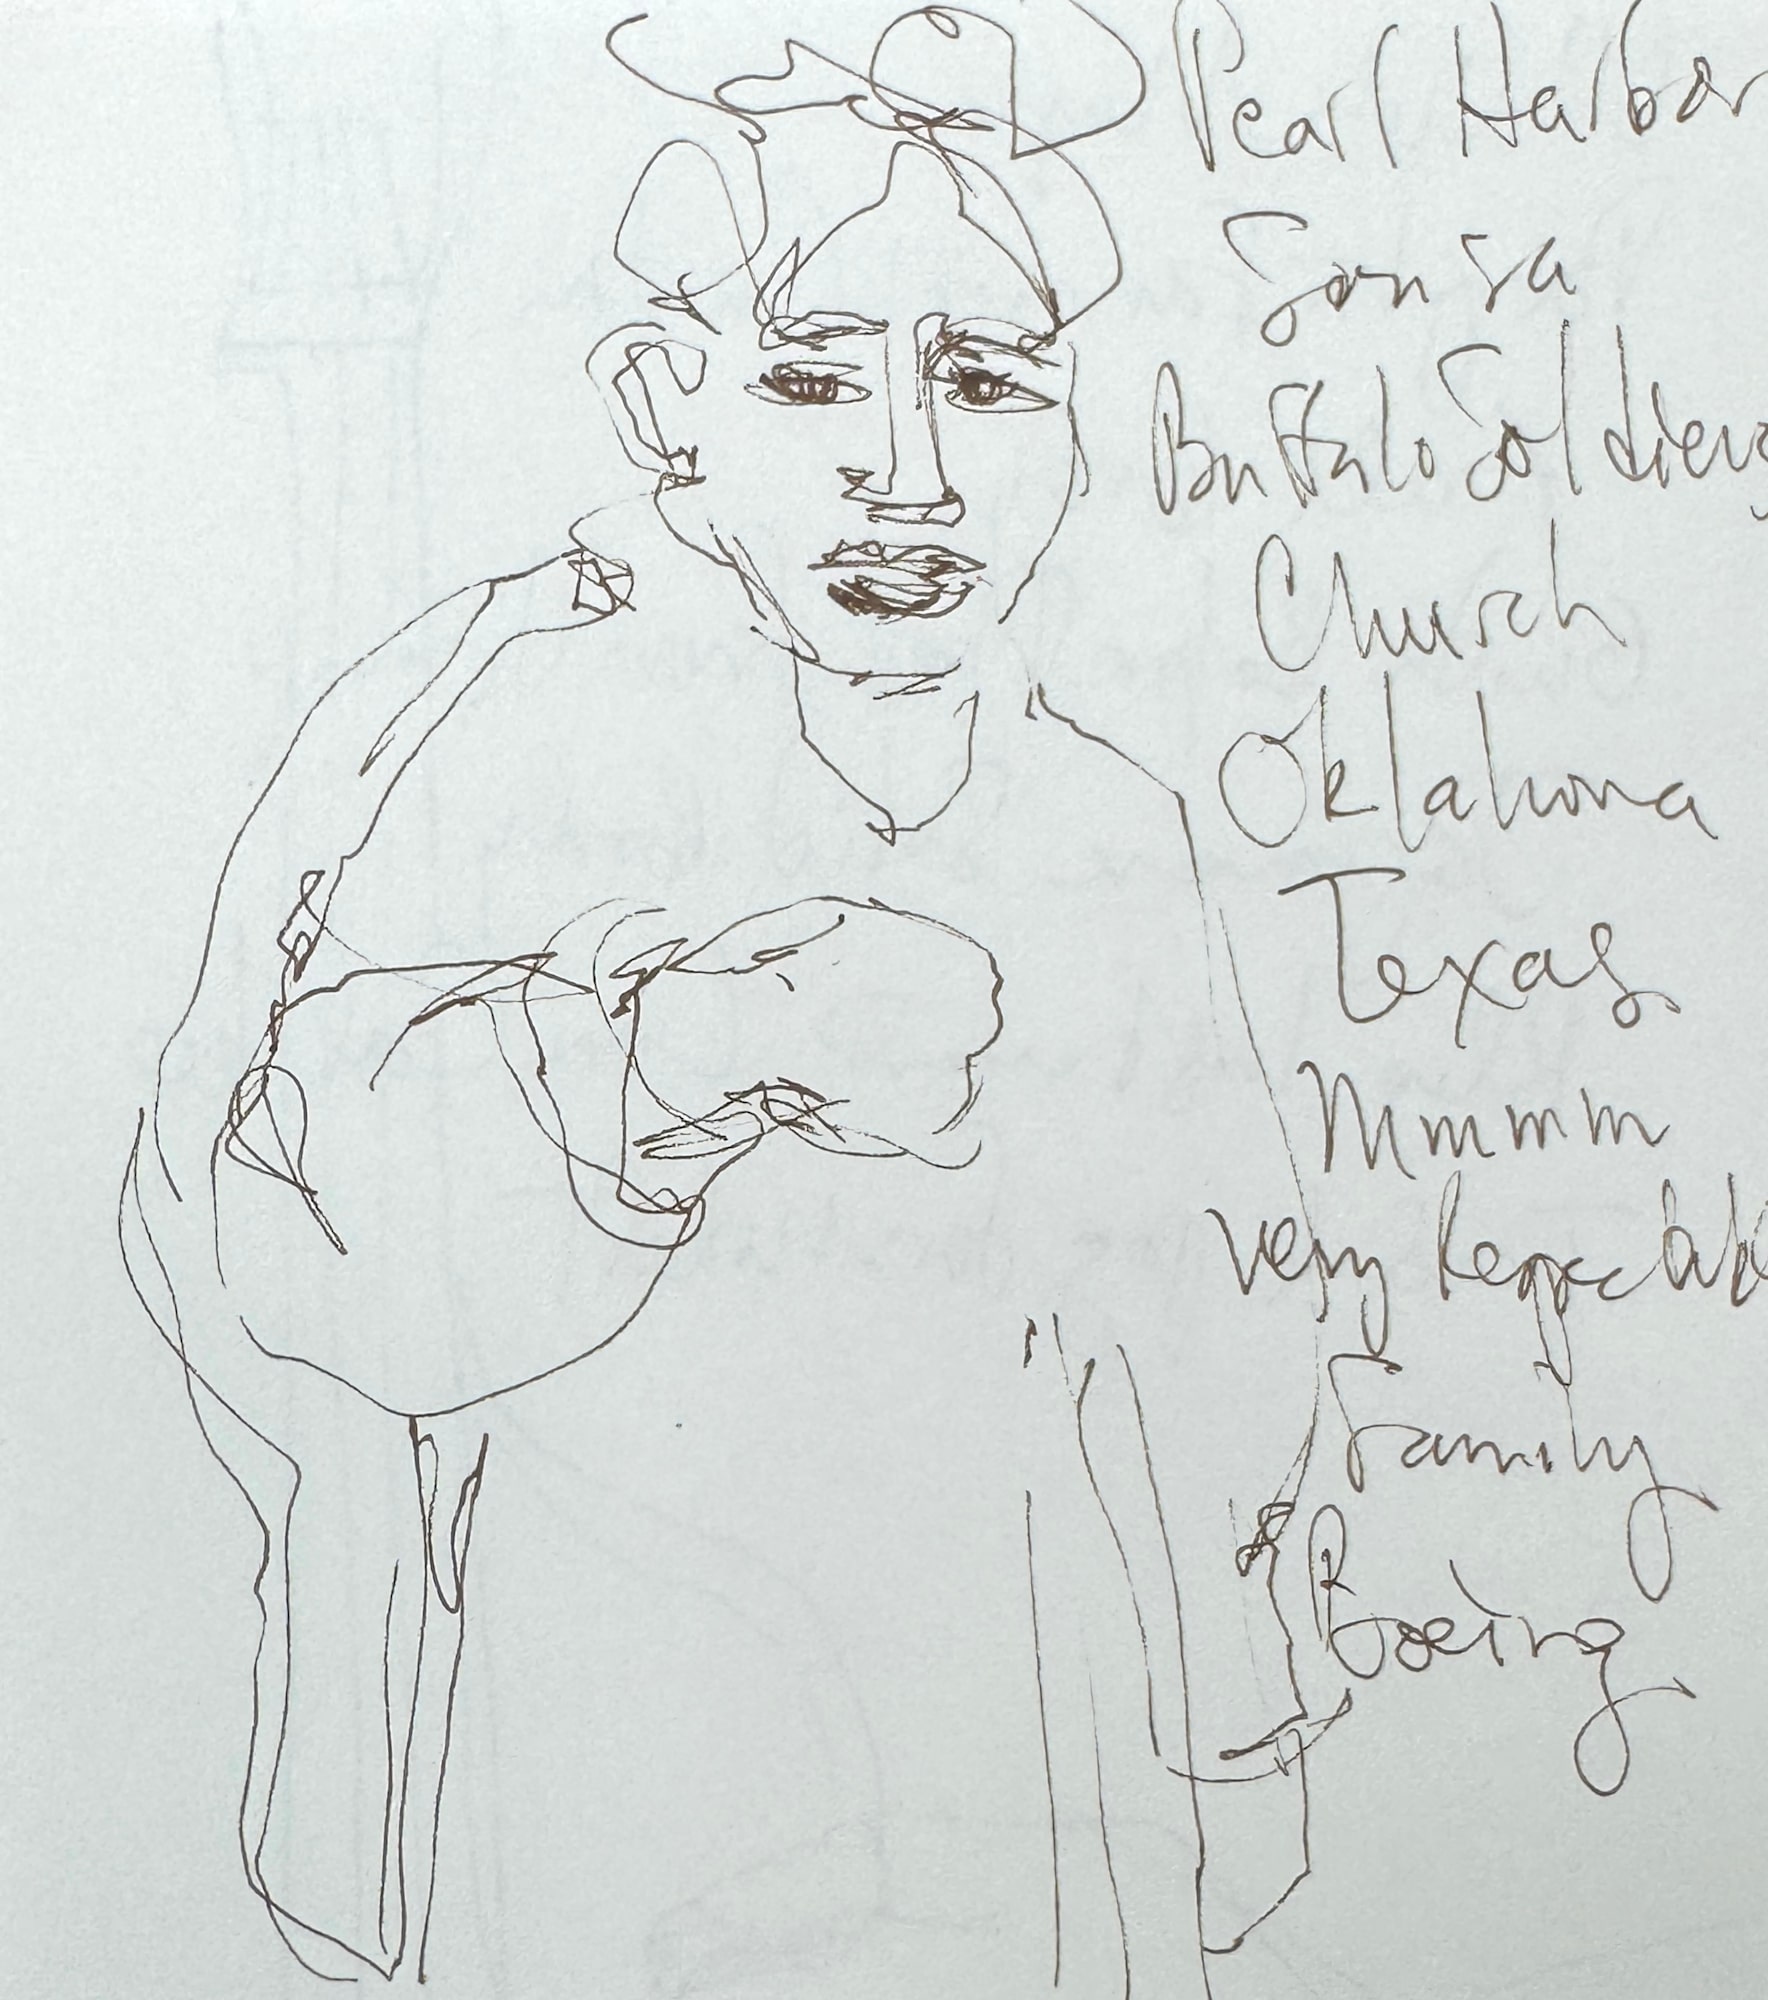 Pearl Harbor
Sousa
Buffalo Soldiers
Church
Oklahoma
Texas
Mmmmm
very Respectable
Family
Boeing